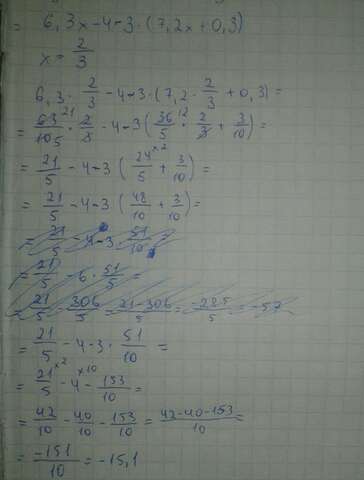 = 6,3x-4-3·(7,2x+0,3)
x = 2/3
6,3 · 2/3 - 4-3·(7,2 · 2/3 + 0,3) =
= 63 21/10 5 · 2/3 - 4-3(36 12/5 · 2/3 + 3/10) =
= 21/5 - 4-3(24 ×2/5 + 3/10) =
= 21/5 - 4-3(48/10 + 3/10) =
= 21/5 - 4-3 51/10 =
= 21/5 - 6 · 51/5 =
= 21/5 - 306/5 = 21-306/5 = -285/5 = -57
= 21/5 - 4-3 · 51/10 =
= 21 ×2/5 - 4 ×10 - 153/10 =
= 42/10 - 40/10 - 153/10 = 42-40-153/10 =
= -151/10 = -15,1